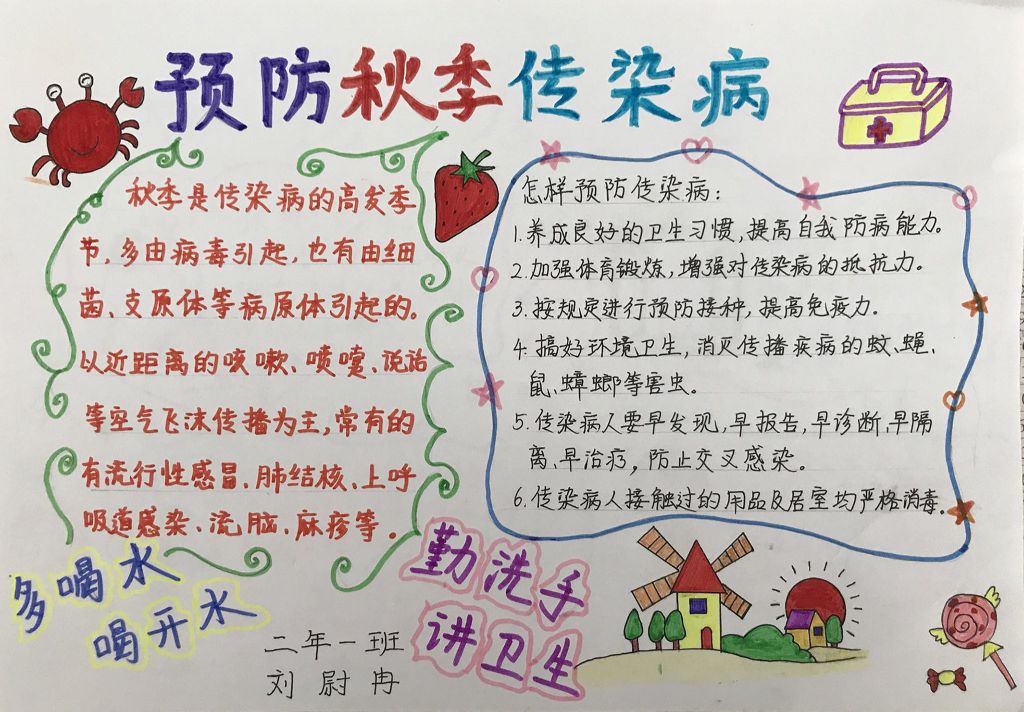 预防秋季传染病
秋季是传染病的高发季
节,多由病毒引起,也有由细
菌、支原体等病原体引起的。
以近距离的咳嗽、喷嚏、说话
等空气飞沫传播为主,常有的
有流行性感冒、肺结核、上呼
吸道感染、流脑、麻疹等。
怎样预防传染病:
1.养成良好的卫生习惯,提高自我防病能力。
2.加强体育锻炼,增强对传染病的抵抗力。
3.按规定进行预防接种,提高免疫力。
4.搞好环境卫生,消灭传播疾病的蚊、蝇、
鼠、蟑螂等害虫。
5.传染病人要早发现,早报告,早诊断,早隔
离、早治疗,防止交叉感染。
6.传染病人接触过的用品及居室均严格消毒。
多喝水
喝开水
勤洗手
讲卫生
二年一班
刘尉冉